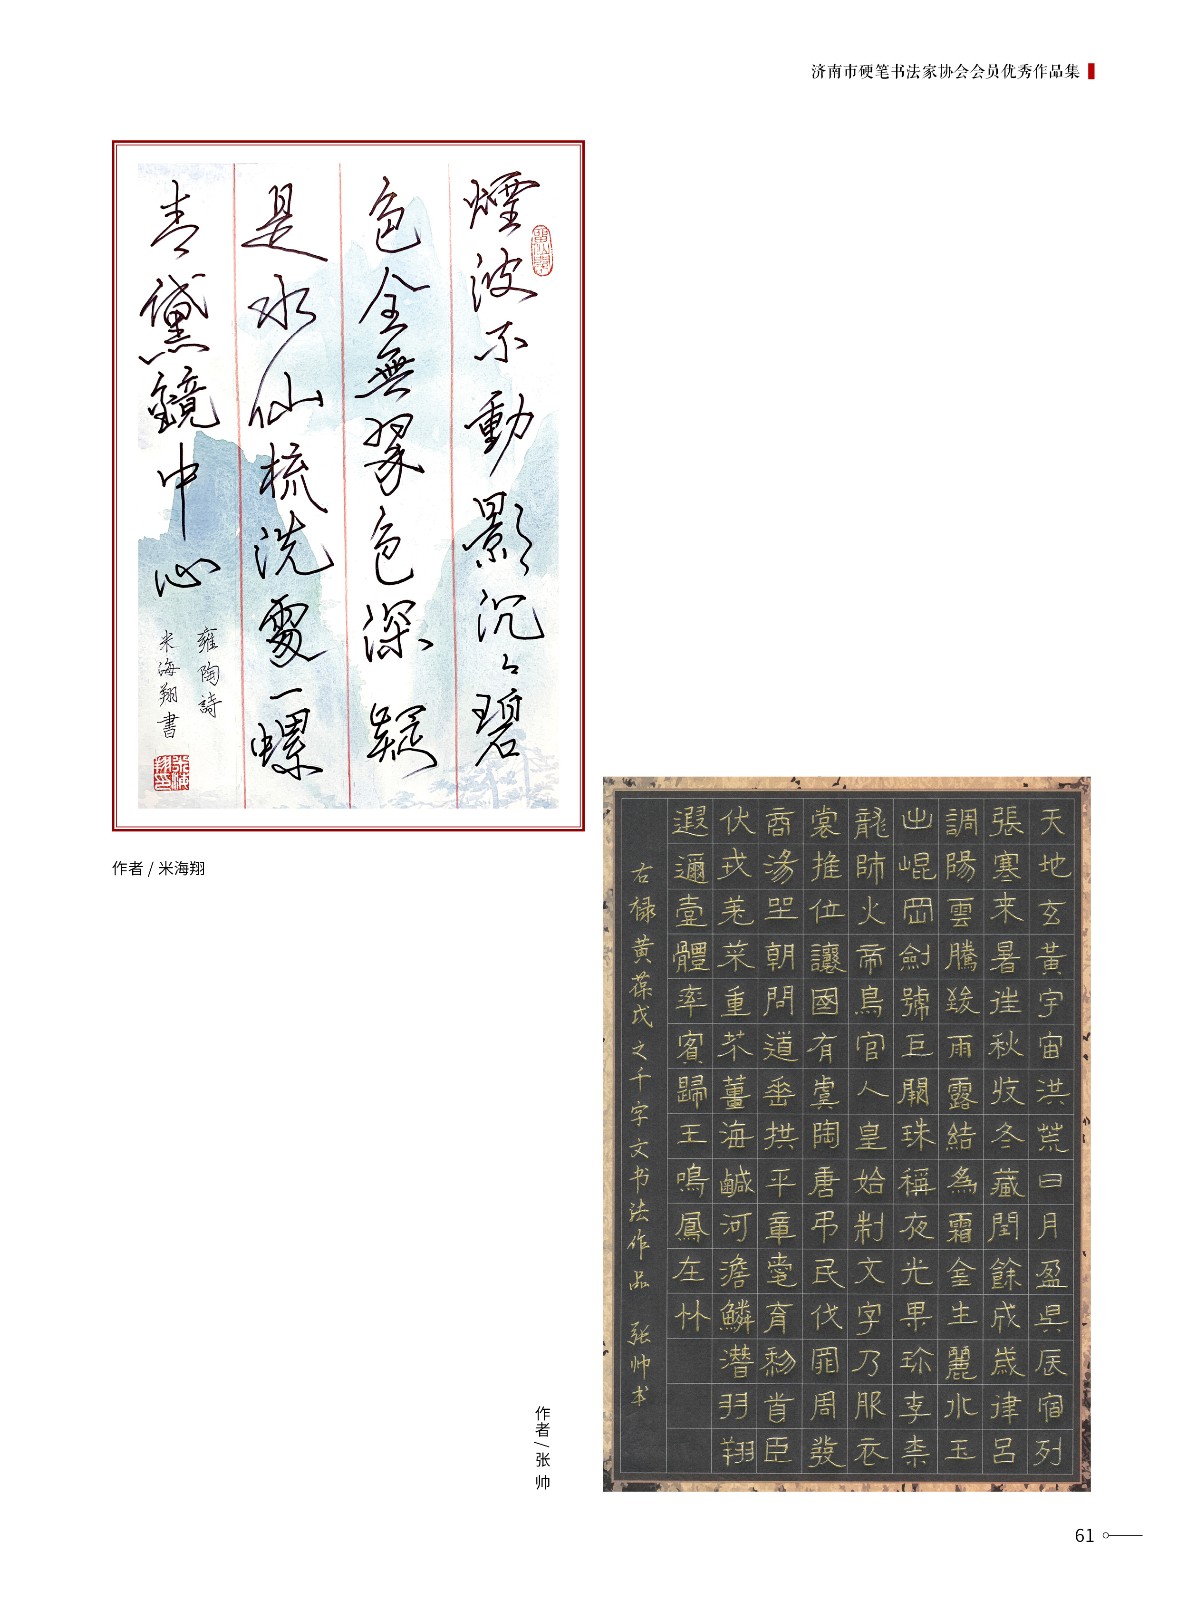 济南市硬笔书法家协会会员优秀作品集
煙波不動影沉々碧
色全無翠色深疑
是水仙梳洗處一螺
青黛鏡中心
雍陶詩
米海翔書
作者 / 米海翔
天地玄黃宇宙洪荒日月盈昃辰宿列
張寒来暑往秋收冬藏閏餘成歲律呂
調陽雲騰致雨露結為霜金生麗水玉
出崐岡劍號巨闕珠稱夜光果珍李柰
龍師火帝鳥官人皇始制文字乃服衣
裳推位讓國有虞陶唐弔民伐罪周發
商湯坐朝問道垂拱平章愛育黎首臣
伏戎羌菜重芥薑海鹹河澹鱗潛羽翔
遐邇壹體率賓歸王鳴鳳在林
右禄黄葆戉之千字文书法作品 张帅书
作者/张 帅
61